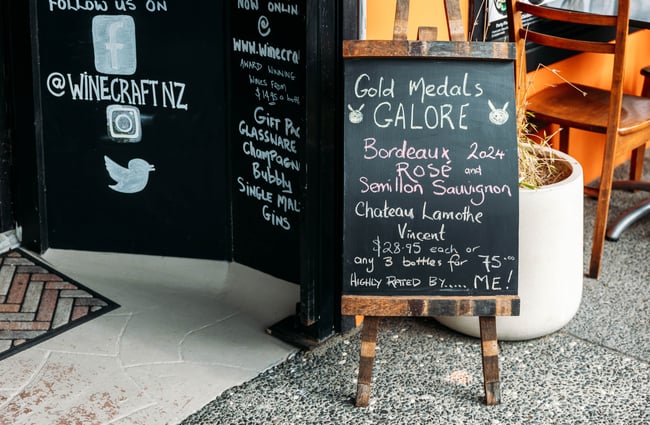 FOLLOW US ON
@WINECRAFTNZ
NOW ONLIN
@
AWARD WINNING
WINES FROM
GLASSWARE
CHAMPAGN
BUBBLY
SINGLE MAL
GINS
Gold Medals
GALORE
Bordeaux 2024
Rosé and
Semillon Sauvignon
Chateau Lamothe
Vincent
$28.95 each or
any 3 bottles for 75.00
HIGHLY RATED BY..... ME!